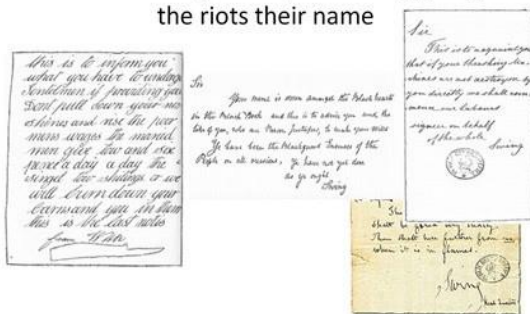 the riots their name
this is to inform you
what you have to undergo
Jentelman if providing you
Dont pull down your
shines and rise the poor
mens wages the maried
man give tow and six
pence a day a day the
singel tow shilings or we
will burn down your
barns and you in them
this is the last notis
from
Sir
Your name is down amongst the Black hearts
in the Black Book and this is to advise you and the
like of you, who are Parson Justasses, to make your wills
Ye have been the Blackguard Enemies of the
People on all occasions, Ye have not yet done
as ye ought
Swing
Sir
This is to acquaint you
that if your thrashing ma-
chines are not destroyed by
you directly we shall com-
mence our labours
signed on behalf
of the whole
Swing
shall be
than shall hear further from
when it is in flames.
Swing